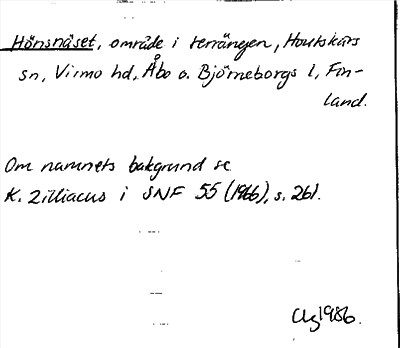 Hönsnäset, område i terrängen, Houtskärs
sn, Virmo hd, Åbo o. Björneborgs l, Fin-
land.
Om namnets bakgrund se
K. Zilliacus i SNF 55 (1966), s. 261.
1986.